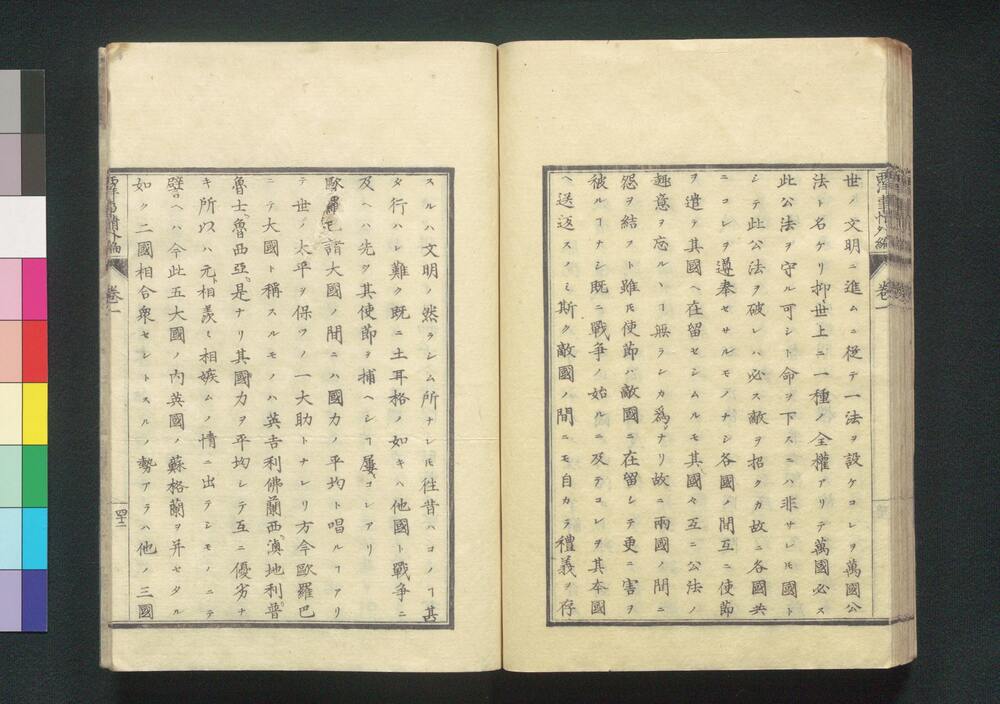 世ノ文明ニ進ムニ從テ一法ヲ設ケコレヲ萬國公
法ト名ケリ抑世上ニ一種ノ全權アリテ萬國必ス
此公法ヲ守ル可シト命ヲ下スニハ非サレ𪜈國ト
シテ此公法ヲ破レハ必ス敵ヲ招クカ故ニ各國共
ニコレヲ遵奉セサルモノナシ各國ノ間互ニ使節
ヲ遣テ其國ヘ在留セシムルモ其國々互ニ公法ノ
趣意ヲ忘ルヽヿ無ランカ爲ナリ故ニ兩國ノ間ニ
怨ヲ結フト雖𪜈使節ハ敵國ニ在留シテ更ニ害ヲ
被ルヿナシ既ニ戰爭ノ始ルニ及テコレヲ其本國
ヘ送返スノミ斯ク敵國ノ間ニモ自カラ禮義ノ存
西洋事情外編
卷一
スルハ文明ノ然ラシム所ナレ𪜈徃昔ハコノヿ甚
タ行ハレ難ク既ニ土耳格ノ如キハ他國ト戰爭ニ
及ヘハ先ツ其使節ヲ捕ヘシヿ屢コレアリ
歐羅巴諸大國ノ間ニハ國力ノ平均ト唱ルヿアリ
テ世ノ太平ヲ保ツノ一大助トナレリ方今歐羅巴
ニテ大國ト稱スルモノハ英吉利佛蘭西澳地利普
魯士魯西亞是ナリ其國力ヲ平均シテ互ニ優劣ナ
キ所以ハ元ト相羨ミ相嫉ムノ情ニ出テシモノニテ
譬ヘハ今此五大國ノ内英國ノ蘇格蘭ヲ并セタル
如ク二國相合衆セントスルノ勢アラハ他ノ三國
西洋事情外編
卷一
四十二